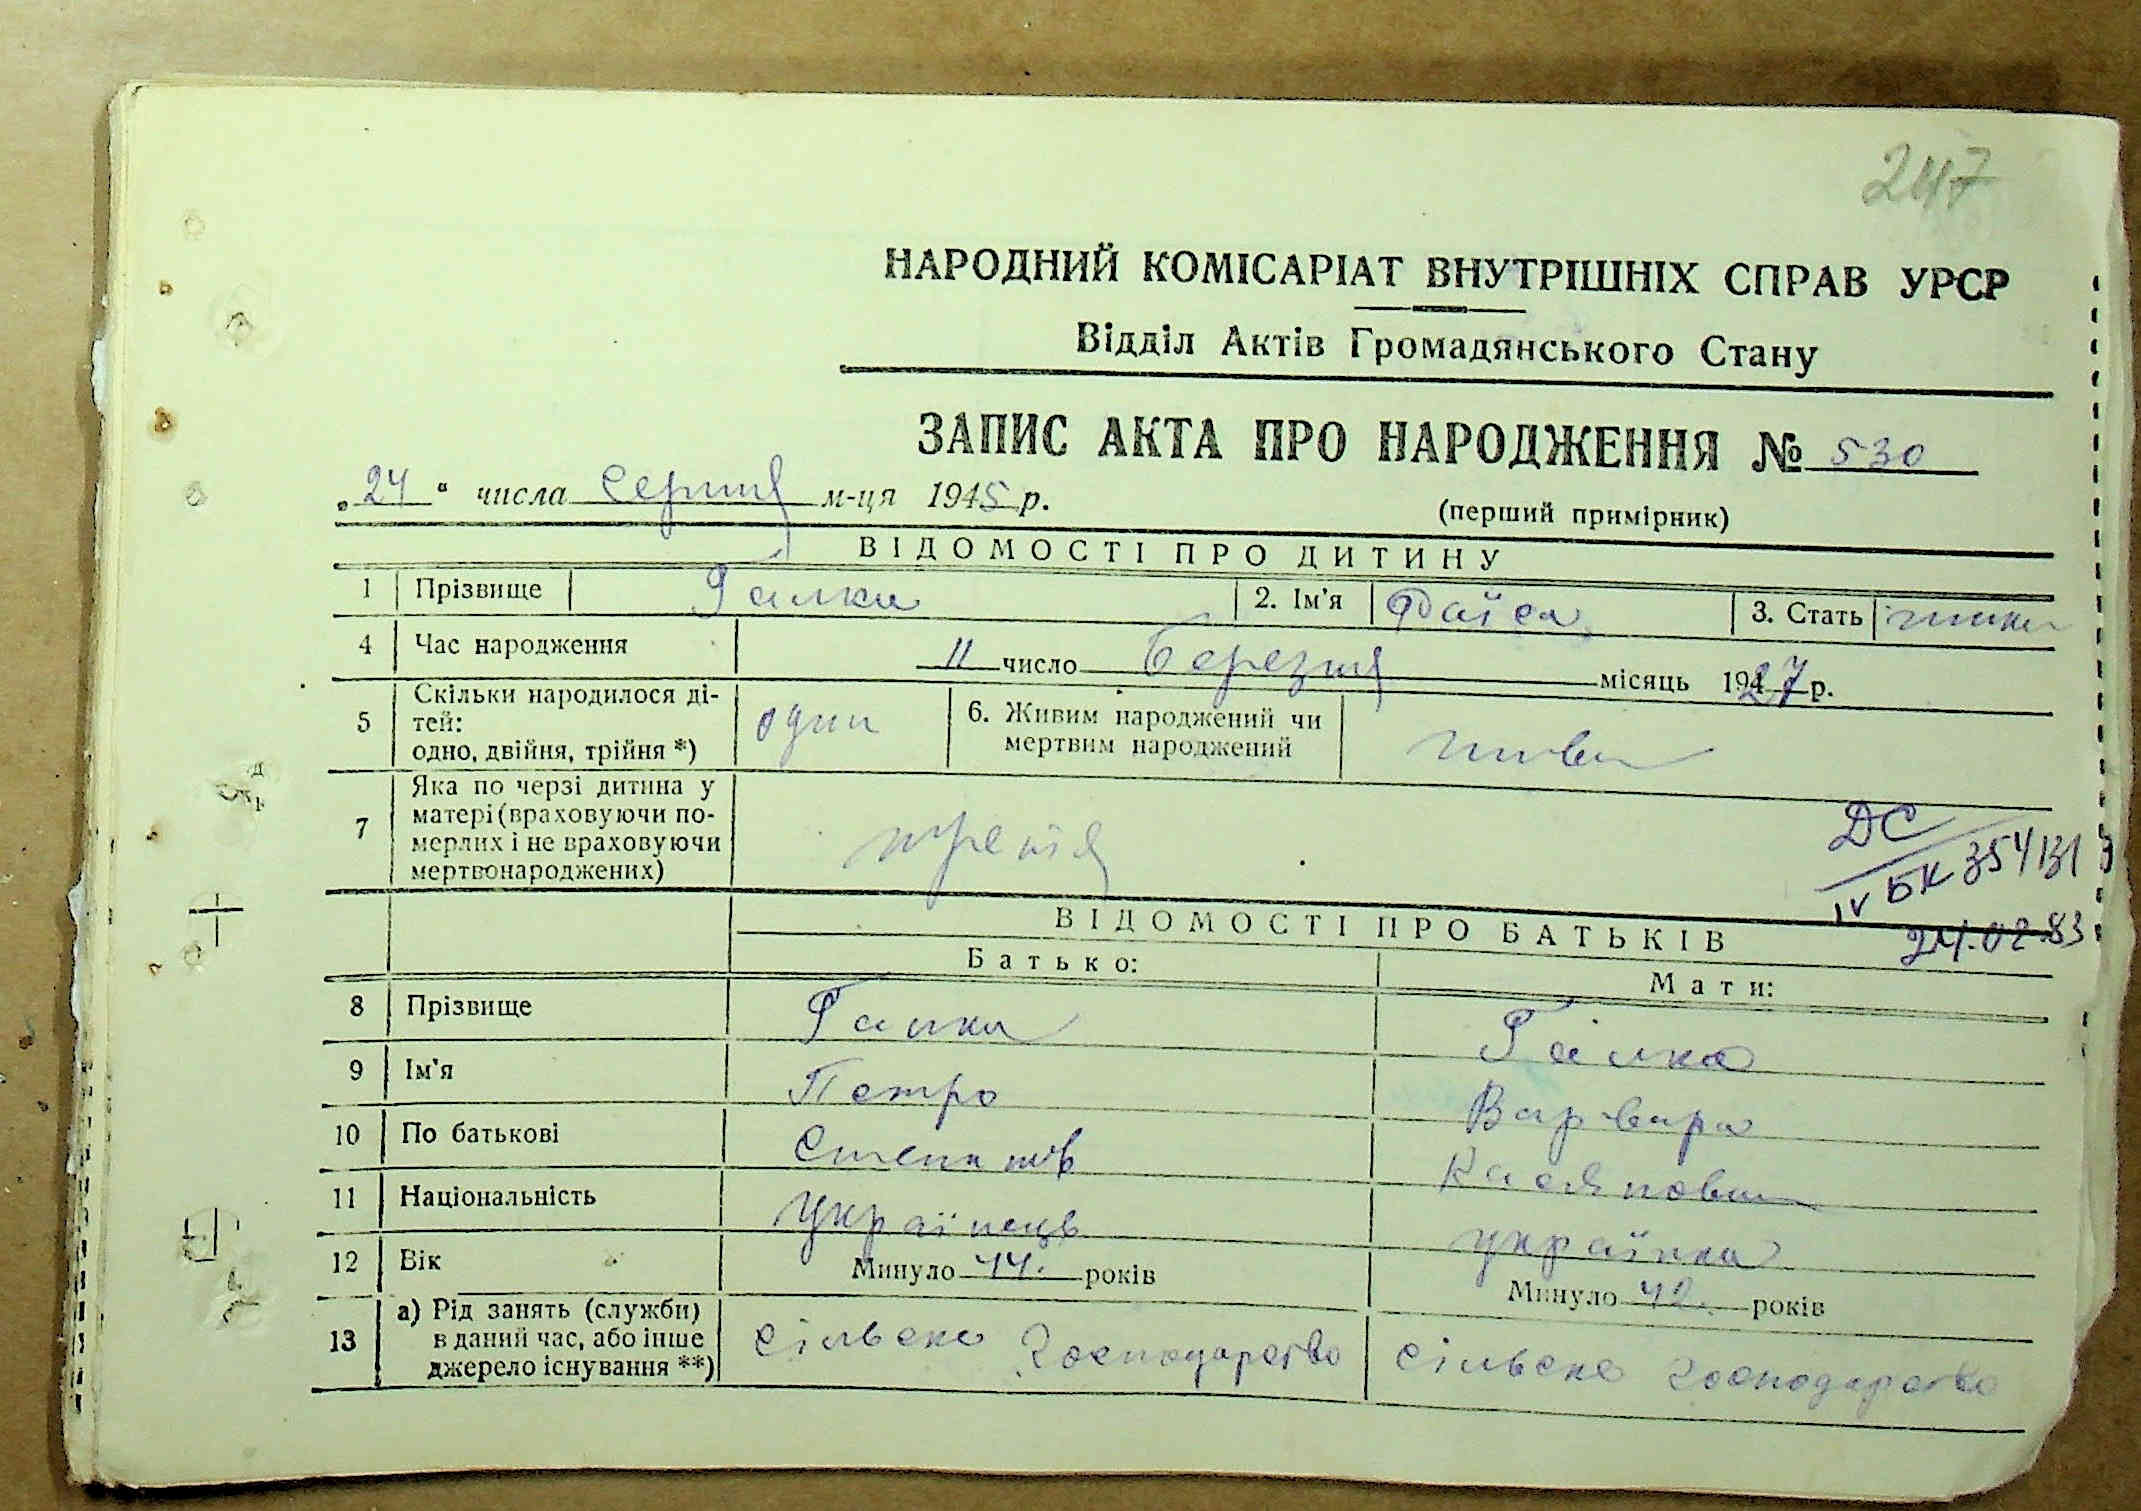 247
НАРОДНИЙ КОМІСАРІАТ ВНУТРІШНІХ СПРАВ УРСР
Відділ Актів Громадянського Стану
ЗАПИС АКТА ПРО НАРОДЖЕННЯ № 530
„24“ числа серпня м-ця 1945 р.
(перший примірник)
ВІДОМОСТІ ПРО ДИТИНУ
1 Прізвище Галка 2. Ім'я Раїса 3. Стать жінка
4 Час народження 11 число Березня місяць 1927 р.
5 Скільки народилося ді-
тей:
одно, двійня, трійня *) один
6. Живим народжений чи
мертвим народжений живим
7 Яка по черзі дитина у
матері (враховуючи по-
мерлих і не враховуючи
мертвонароджених) третя
ДС
IV БК 354131
24.02.83
ВІДОМОСТІ ПРО БАТЬКІВ
Батько: Мати:
8 Прізвище Галка Галка
9 Ім'я Петро Варвара
10 По батькові Степанов Касяновна
11 Національність Українець українка
12 Вік Минуло 44. років Минуло 42. років
13 а) Рід занять (служби)
в даний час, або інше
джерело існування **)
сільське господарство сільське господарство